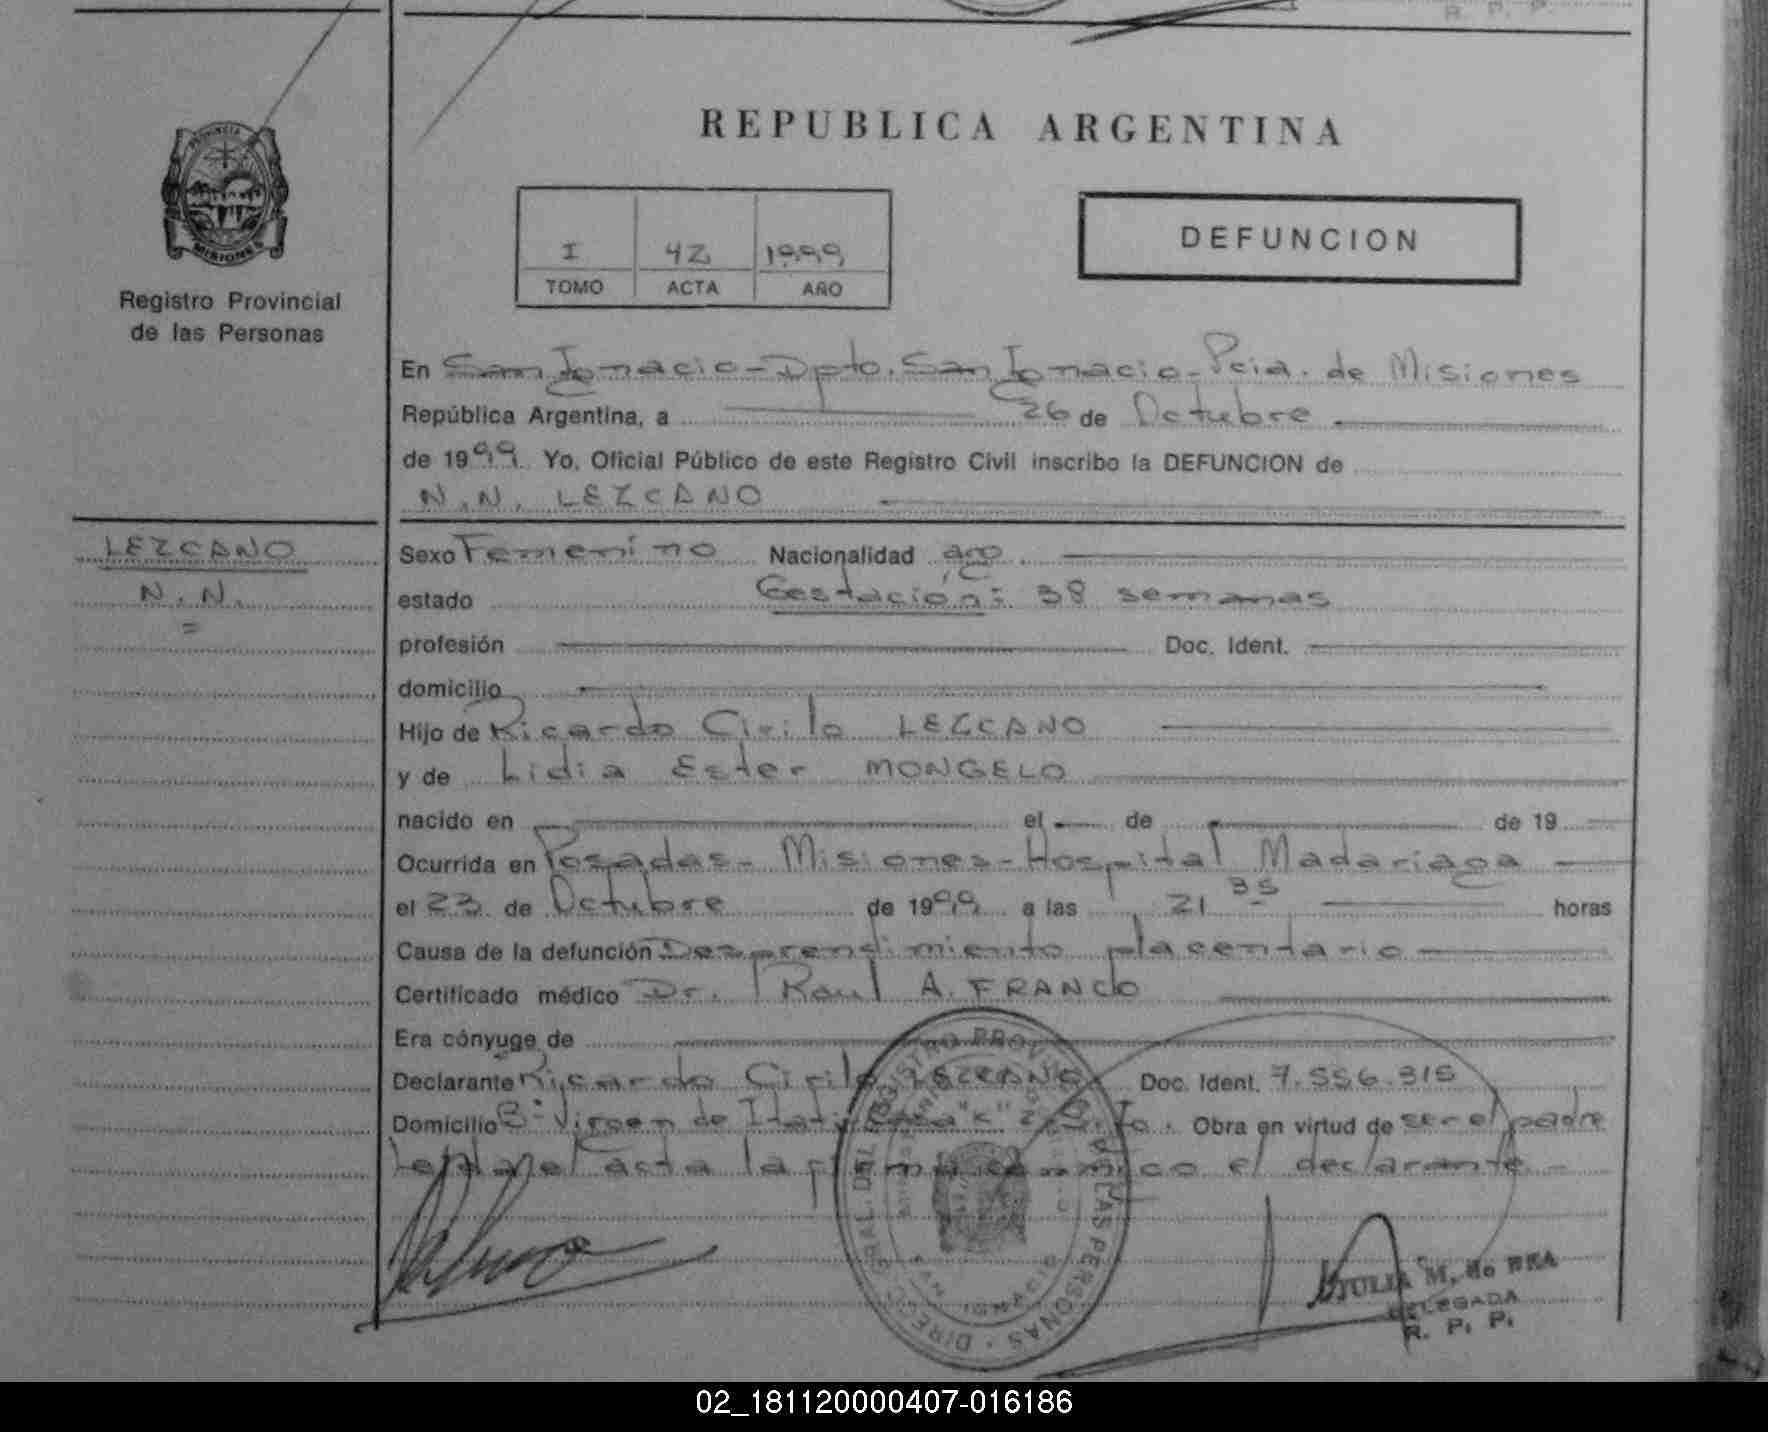 R. P. P.
PROVINCIA
MISIONES
Registro Provincial
de las Personas
REPUBLICA ARGENTINA
I 42 1999
TOMO ACTA AÑO
DEFUNCION
En San Ignacio - Dpto. San Ignacio - Pcia. de Misiones
República Argentina, a 26 de Octubre
de 1999 Yo, Oficial Público de este Registro Civil inscribo la DEFUNCION de
N.N. LEZCANO
LEZCANO
N.N.
Sexo Femenino Nacionalidad arg.
estado Gestación: 38 semanas
profesión Doc. Ident.
domicilio
Hijo de Ricardo Cirilo LEZCANO
y de Lidia Ester MONGELO
nacido en el de de 19
Ocurrida en Posadas - Misiones - Hospital Madariaga
el 23 de Octubre de 1999 a las 21 35 horas
Causa de la defunción Desprendimiento placentario
Certificado médico Dr. Raul A. FRANCO
Era cónyuge de
Declarante Ricardo Cirilo LEZCANO Doc. Ident. 7.556.315
Domicilio B° Virgen de Itatí "K" Obra en virtud de ser el padre
Leída el acta la firma conmigo el declarante
DIREC. GRAL. DEL REGISTRO PROVINCIAL DE LAS PERSONAS
SAN IGNACIO
JULIA M. de REA
DELEGADA
R. P. P.
02_181120000407-016186